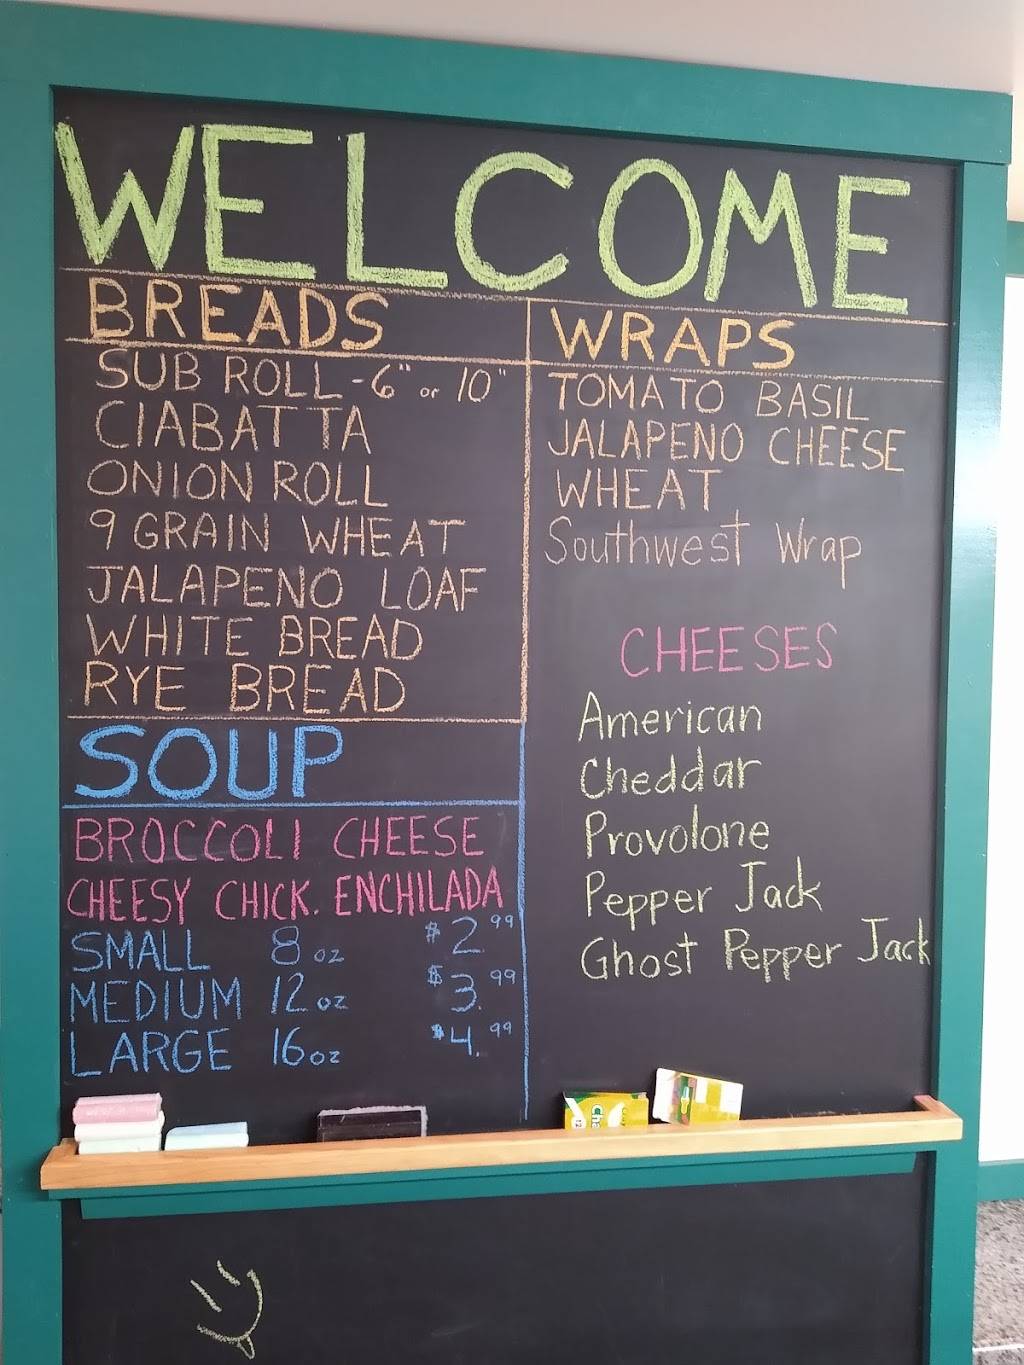 WELCOME
BREADS
SUB ROLL - 6" or 10"
CIABATTA
ONION ROLL
9 GRAIN WHEAT
JALAPENO LOAF
WHITE BREAD
RYE BREAD
SOUP
BROCCOLI CHEESE
CHEESY CHICK. ENCHILADA
SMALL 8 oz $2.99
MEDIUM 12 oz $3.99
LARGE 16 oz $4.99
WRAPS
TOMATO BASIL
JALAPENO CHEESE
WHEAT
Southwest Wrap
CHEESES
American
Cheddar
Provolone
Pepper Jack
Ghost Pepper Jack